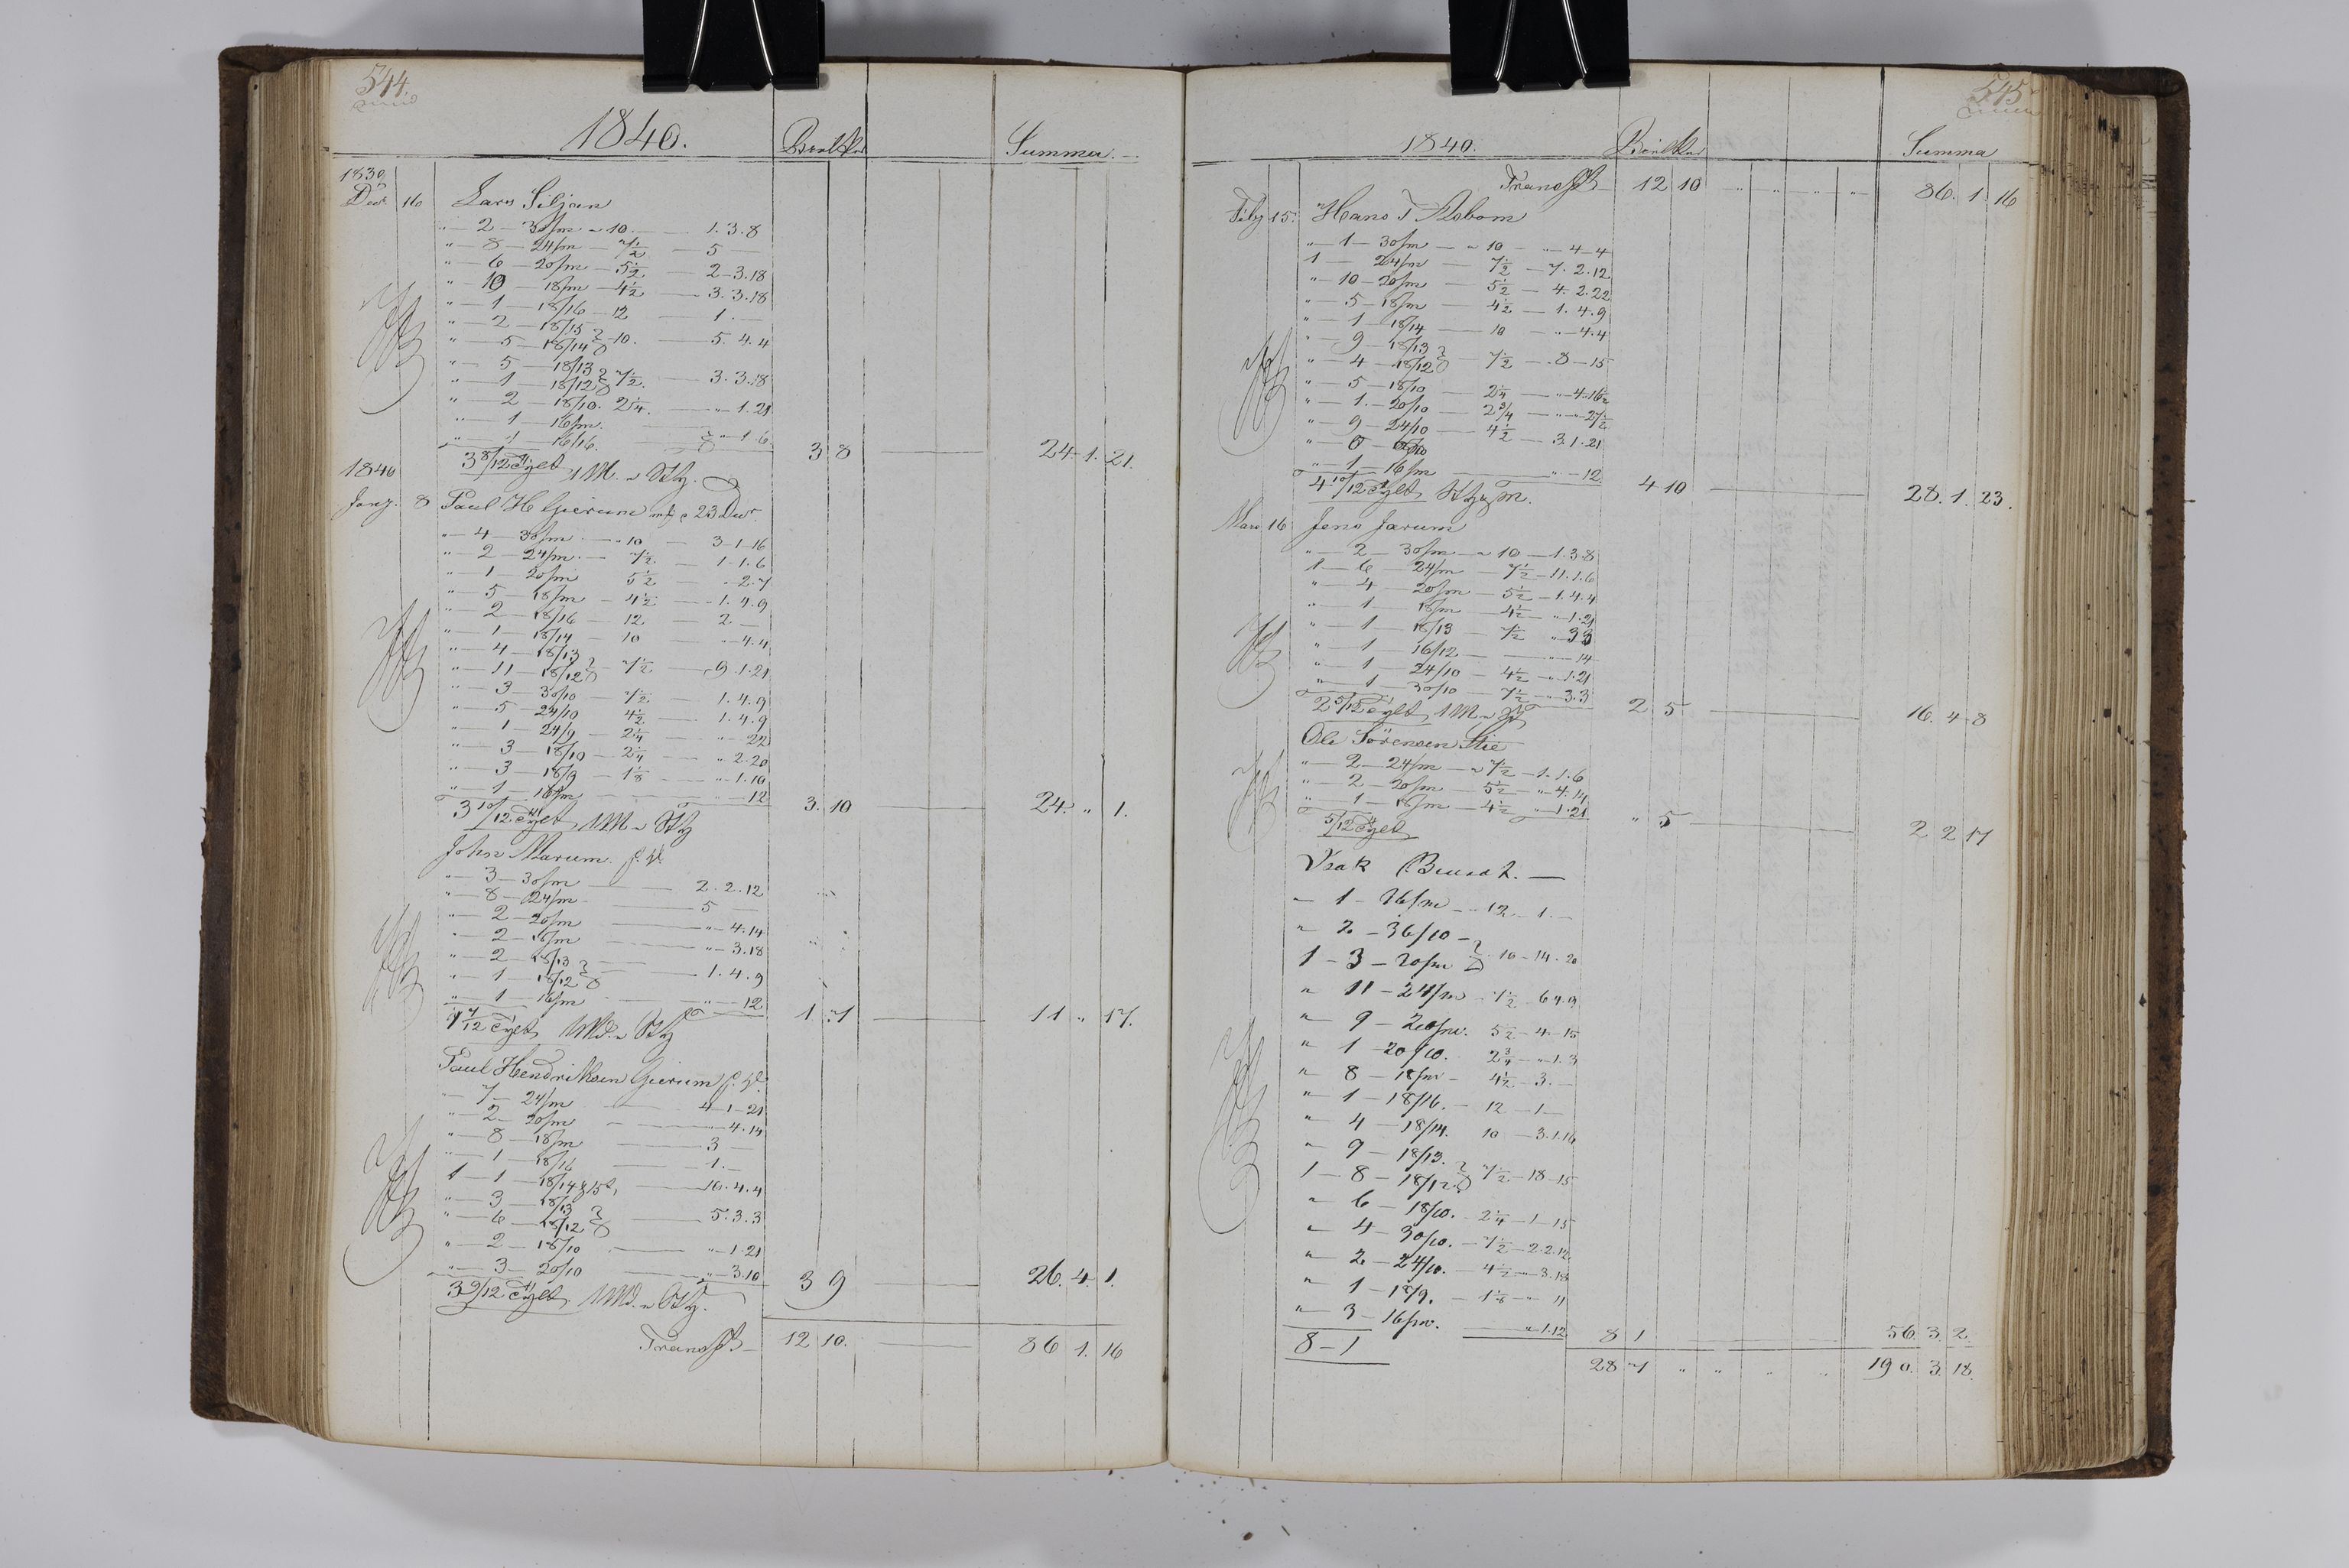 544.
1840.
Summa.
1839
Decr 16 Lars Siljan
" 2 - 30/m - " 10 - 1.3.8
" 8 - 24/m - 7½ - 5
" 6 - 20/m - 5½ - 2-3.18
" 10 - 18/m - 4½ - 3.3.18
" 1 - 18/16 - 12 - 1.-
" 2 - 18/15
" 5 - 18/14 } 10. - 5.4.4
" 5 - 18/13
" 1 - 18/12 } 7½. - 3.3.18
" 2 - 18/10. 2¼. - " 1.21
" 1 - 16/m.
" 1 - 16/16. } " 1.6
3 8/12 Tylt 3 8 - 24.1.21.
1840
Jany. 8 Paul H Gierum 23 Decr
" 4 - 30/m - " 10 - 3-1-16
" 2 - 24/m - 7½ - 1-1.6
" 1 - 20/m 5½ - " 2.7
" 5 - 18/m - 4½ - 1.4.9
" 2 - 18/16 - 12 - 2 -
" 1 - 18/14 - 10 - " 4.4
" 4 - 18/13
" 11 - 18/12 } 7½ - 9.1.21
" 3 - 30/10 - 7½ - 1.4.9
" 5 - 24/10 4½ - 1.4.9
" 1 - 24/9 - 2¼ - " 22
" 3 - 18/10 - 2¼ - " 2.20
" 3 - 18/9 - 1⅛ - " 1.10
" 1 - 16/m - " - 12
3 10/12 Tylt 3.10 - 24. " 1.
John Marum
" 3 - 30/m - 2.2.12
" 8 - 24/m - 5 -
" 2 - 20/m - " 4.14
" 2 - 18/m - " 3.18
" 2 - 18/13
" 1 - 18/12 } 1.4.9
" 1 - 16/m - " - 12
1 7/12 Tylt 1 7 - 11 " 17.
Paul Hendriksen Gierum
" 7 - 24/m - 4-1-21
" 2 - 20/m - " 4.14
" 8 - 18/m - 3 -
" 1 - 18/16 - 1.-
1 - 1 - 18/14 & 15 - 10.4.4
" 3 - 18/13
" 6 - 18/12 } 5.3.3
" 2 - 18/10 - " 1.21
" 3 - 20/10 - " 3.10
3 9/12 Tylt 3 9 - 26.4.1.
Transpt 12 10. - 86 1.16
545
1840.
Summa
Transpt 12 10 " " " " 86.1.16
Feby 15. Hans T Aabom
" 1 - 30/m - " 10 - " 4-4
1 - 24/m - 7½ - 7.2.12
" 10 - 20/m - 5½ - 4.2.22
" 5 - 18/m - 4½ - 1.4.9
" 1 - 18/14 - 10 - " 4.4
" 9 - 18/13
" 4 - 18/12 } 7½ - 8-15
" 5 - 18/10 - 2¼ - " 4.16½
" 1 - 20/10 - 2¾ - " " 27½
" 9 - 24/10 - 4½ - 3.1.21
" 1 - 16/m - " - 12
4 10/12 Tylt 4 10 - 28.1.23.
Mars 16 Jens Jarum
" 2 - 30/m - " 10 - 1.3.8
1 - 6 - 24/m - 7½ - 11.1.6
" 4 - 20/m - 5½ - 1.4.4
" 1 - 18/m - 4½ - " 1.21
" 1 - 18/13 - 7½ " 3 3
" 1 - 16/12 - " - 14
" 1 - 24/10 - 4½ - " 1.21
" 1 - 30/10 - 7½ - " 3.3
2 5/12 Tylt 2 5 - 16.4.8
Ole Sörensen Stie
" 2 - 24/m - " 7½ - 1.1.6
" 2 - 20/m - 5½ - " 4.14
" 1 - 18/m - 4½ " 1.21
5/12 Tylt " 5 - 2 2 17
Isak
" 1 - 36/m - " 12 - 1.-
" 2 - 36/10
1 - 3 - 30/m } 10 - 14.20
" 11 - 24/m - 7½ - 6 4.9
" 9 - 20/m. 5½ - 4.-15
" 1 - 20/10. 2¾ - " 1.3
" 8 - 18/m - 4½ - 3.-
" 1 - 18/16. - 12 - 1 -
" 4 - 18/14. 10 - 3.1.16
" 9 - 18/13.
1 - 8 - 18/12 } 7½ - 18-15
" 6 - 18/10. - 2¼ - 1-15
" 4 - 30/10. - 7½ - 2.2.12
" 2 - 24/10. - 4½ - " 3.18
" 1 - 18/9. - 1⅛ - " 11
" 3 - 16/m. " 1.12
8 - 1 8 1 56.3.2.
28 7 " " " " 190.3.18.